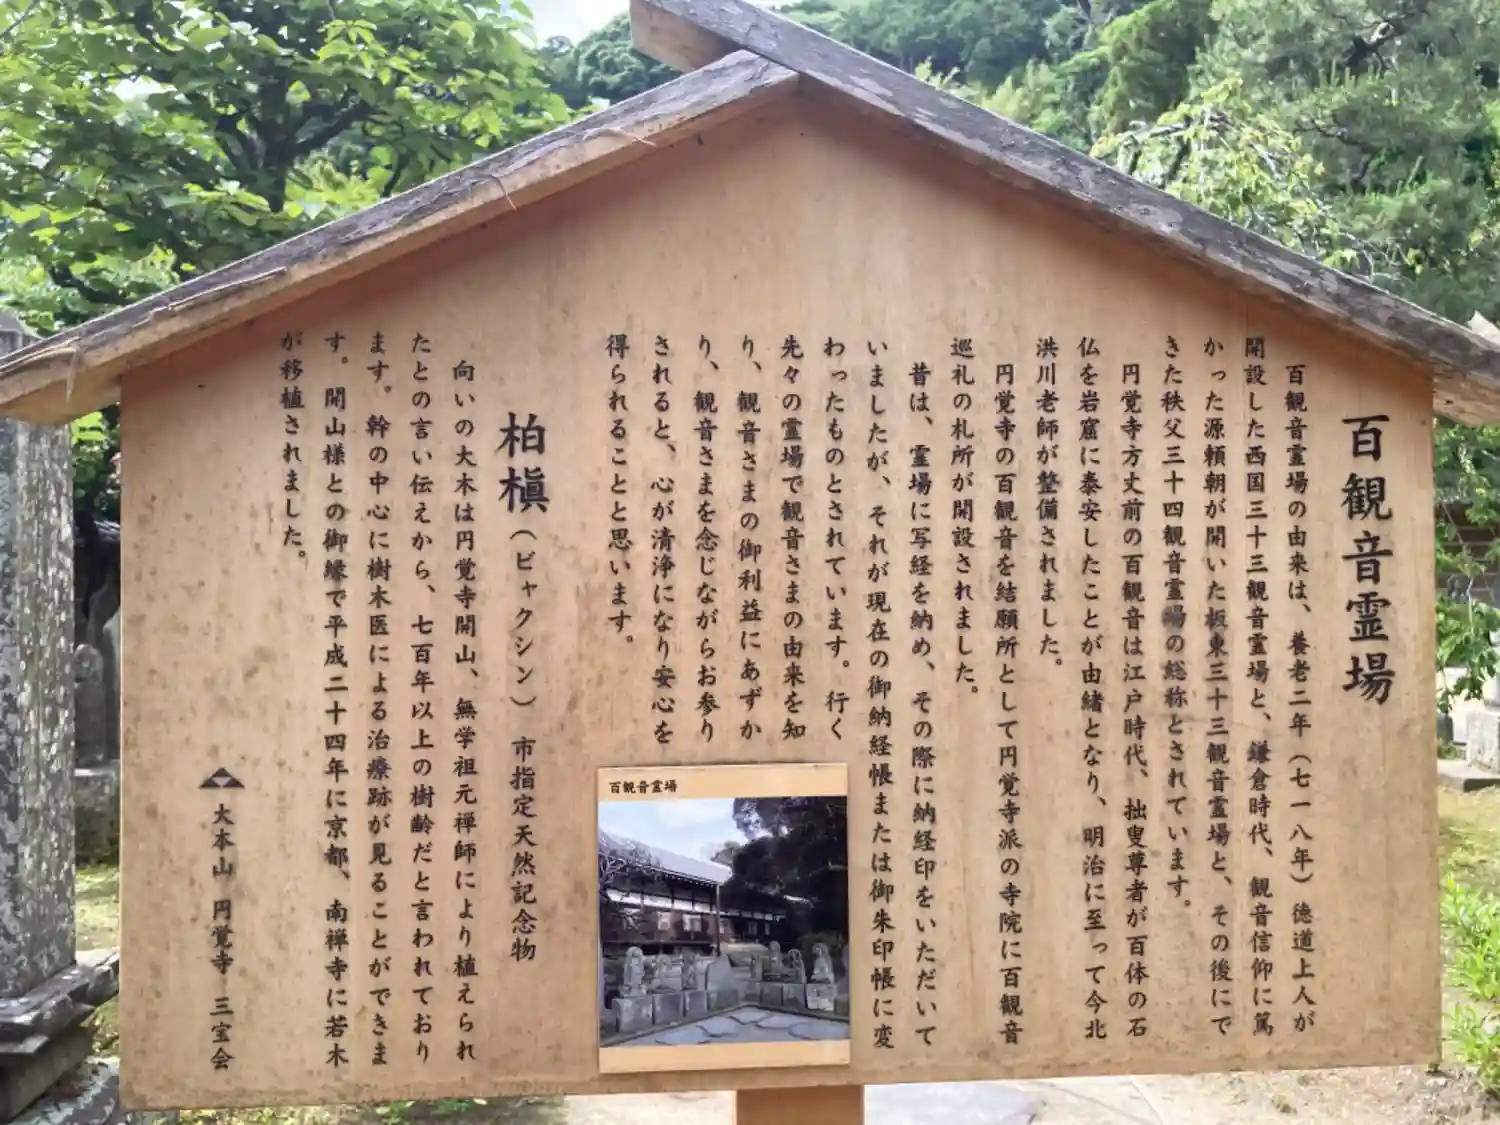 百観音霊場
百観音霊場の由来は、養老二年（七一八年）徳道上人が
開設した西国三十三観音霊場と、鎌倉時代、観音信仰に篤
かった源頼朝が開いた坂東三十三観音霊場と、その後にで
きた秩父三十四観音霊場の総称とされています。
円覚寺方丈前の百観音は江戸時代、拙叟尊者が百体の石
仏を岩窟に泰安したことが由緒となり、明治に至って今北
洪川老師が整備されました。
円覚寺の百観音を結願所として円覚寺派の寺院に百観音
巡礼の札所が開設されました。
昔は、霊場に写経を納め、その際に納経印をいただいて
いましたが、それが現在の御納経帳または御朱印帳に変
わったものとされています。行く
先々の霊場で観音さまの由来を知
り、観音さまの御利益にあずか
り、観音さまを念じながらお参り
されると、心が清浄になり安心を
得られることと思います。
百観音霊場
柏槇（ビャクシン）市指定天然記念物
向いの大木は円覚寺開山、無学祖元禅師により植えられ
たとの言い伝えから、七百年以上の樹齢だと言われており
ます。幹の中心に樹木医による治療跡が見ることができま
す。開山様との御縁で平成二十四年に京都、南禅寺に若木
が移植されました。
大本山 円覚寺 三宝会